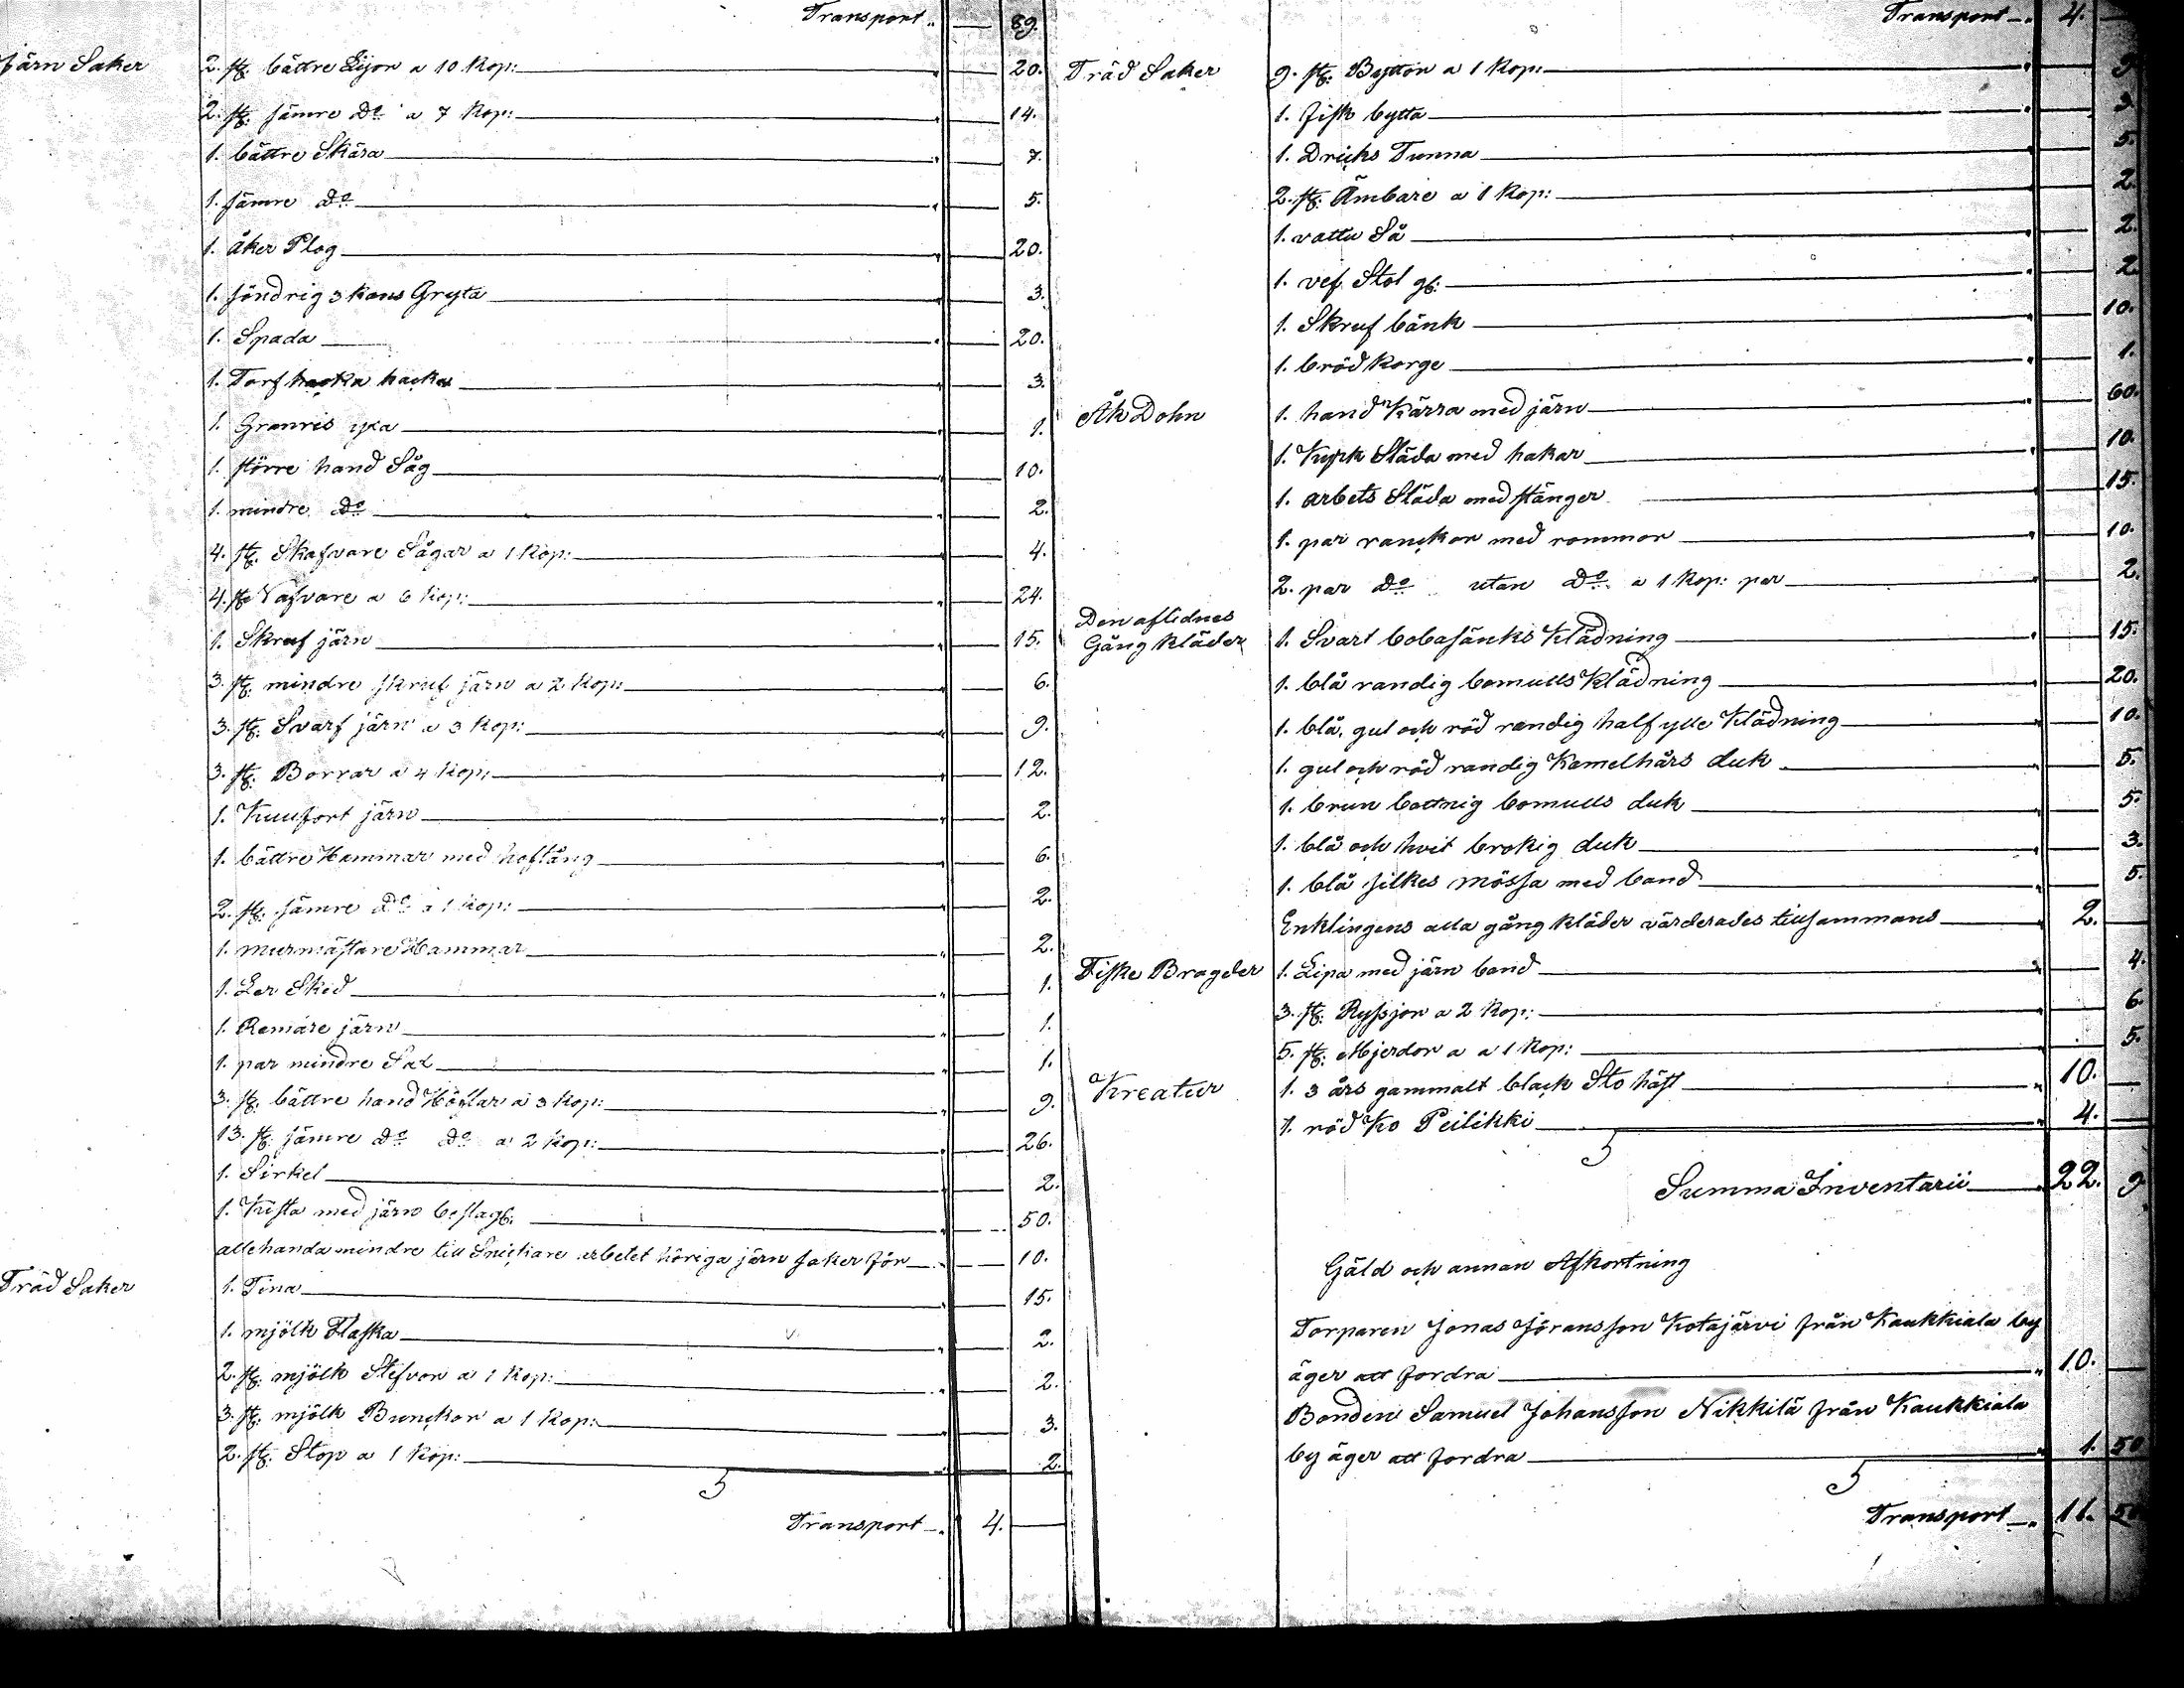 Transport „ — 89.
Järn Saker 2. st: bättre Lijor a 10 Kop: „ — 20.
2. st: sämre Do a 7 Kop: „ — 14.
1. bättre Skära „ — 7.
1. sämre Do „ — 5.
1. åker Plog „ — 20.
1. söndrig 3 kans Gryta „ — 3.
1. Spada „ — 20.
1. Torf hacka „ — 3.
1. Granris yxa „ — 1.
1. större hand Såg „ — 10.
1. mindre Do „ — 2.
4. st: Skafvare Sågar a 1 Kop: „ — 4.
4. st: Nafvare a 6 Kop: „ — 24.
1. Skruf järn „ — 15.
3. st: mindre skruf järn a 2 Kop: „ — 6.
3. st: Svarf järn a 3 Kop: „ — 9.
3. st: Borrar a 4 Kop: „ — 12.
1. Kuufort järn „ — 2.
1. bättre Hammar med hoftång „ — 6.
2. st: sämre Do a 1 Kop: „ — 2.
1. murmästare Hammar „ — 2.
1. Ler Sked „ — 1.
1. Ramare järn „ — 1.
1. par mindre Sax „ — 1.
3. st: bättre hand Höflar a 3 Kop: „ — 9.
13. st: sämre Do Do a 2 Kop: „ — 26.
1. Sirkel „ — 2.
1. Kista med järn beslag: „ — 50.
allehanda mindre till Snickare arbetet höriga järn saker för „ — 10.
Träd Saker 1. Tina „ — 15.
1. mjölk Flaska „ — 2.
2. st: mjölk Stefvor a 1 Kop: „ — 2.
3. st: mjölk Bunckor a 1 Kop: „ — 3.
2. st: Stop a 1 Kop: „ — 2.
Transport „ 4. —
Transport „ 4. —
Träd Saker 9. st: Byttor a 1 Kop: „ — 9.
1. fisk bytta „ — 3.
1. Dricks Tunna „ — 5.
2. st: Ämbare a 1 Kop: „ — 2.
1. vattu Så „ — 2.
1. vef Stol „ — 2.
1. Skruf bänk „ — 10.
1. bröd korge „ — 1.
Åk Dohn 1. hand Kärra med järn „ — 60.
1. Kyrk Släda med hakar „ — 10.
1. arbets Släda med stänger „ — 15.
1. par ranckor med rommor „ — 10.
2. par Do utan Do a 1 Kop: par „ — 2.
Den aflidnes
Gång kläder 1. Svart bobasänks Klädning „ — 15.
1. blå randig bomulls Klädning „ — 20.
1. blå, gul och röd randig half ylle Klädning „ — 10.
1. gul och röd randig Kamelhårs duk „ — 5.
1. brun bottnig bomulls duk „ — 5.
1. blå och hvit brokig duk „ — 3.
1. blå silkes mössa med band „ — 5.
Enklingens alla gång kläder värderades tillsammans „ 2. —
Fiske Bragder 1. Lipa med järn band „ — 4.
3. st: Ryssjor a 2 Kop: „ — 6.
5. st: Mjerdor a a 1 Kop: „ — 5.
Kreatur 1. 3 års gammalt black Sto häst „ 10. —
1. röd Ko Peilikki „ 4. —
Summa Inventarii „ 22. 9
Gäld och annan Afkortning
Torparen Jonas Jöransson Kotajärvi från Kaukkiala by
äger att fordra „ 10. —
Bonden Samuel Johansson Nikkilä från Kaukkiala
by äger att fordra „ 1. 50
Transport „ 11. 50